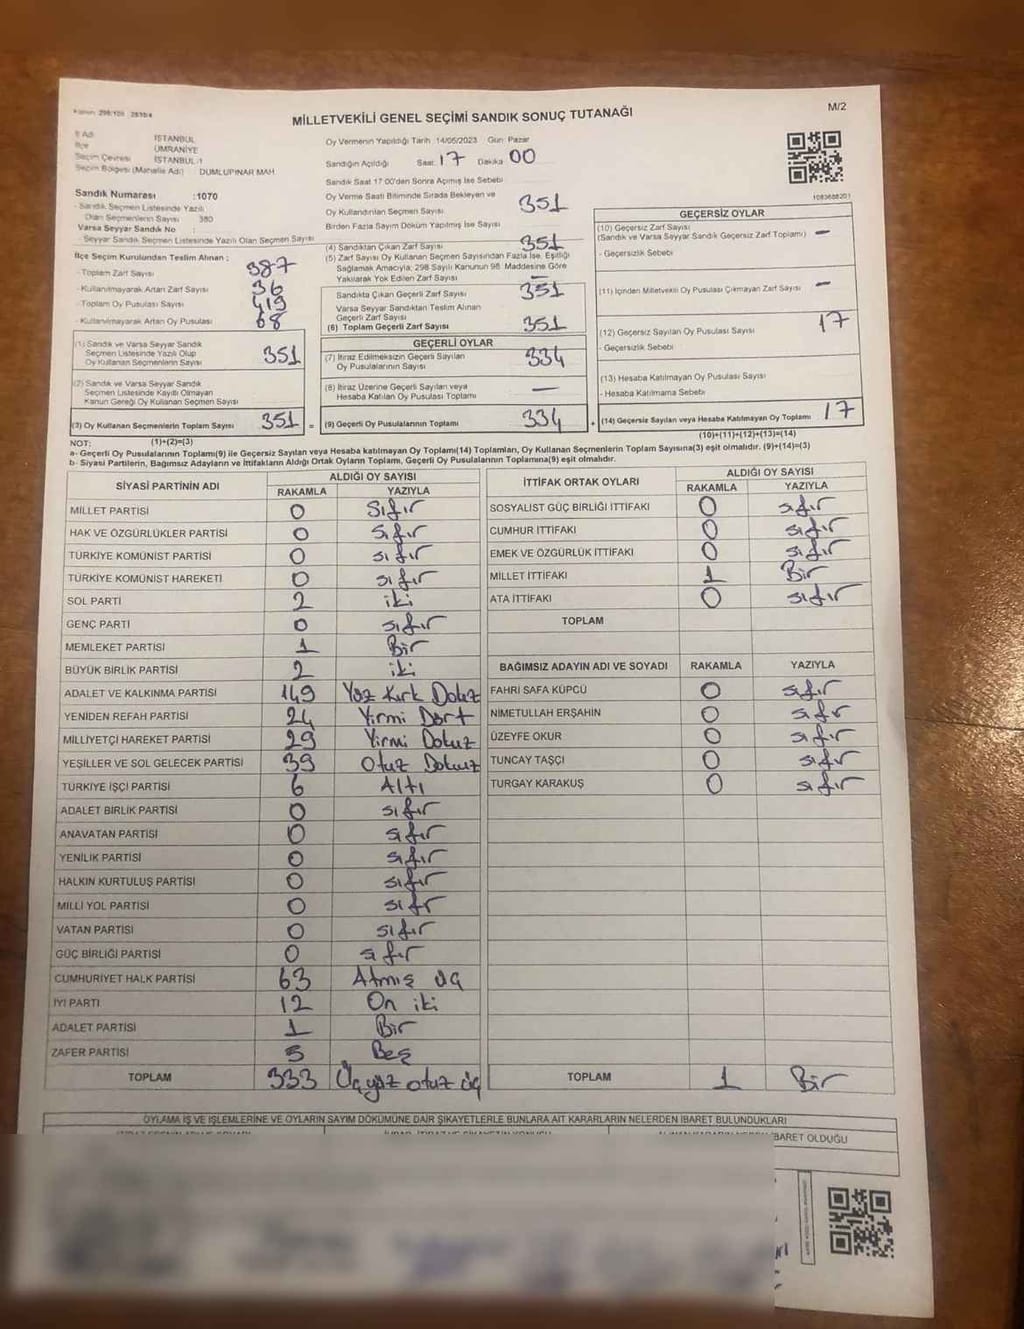 MİLLETVEKİLİ GENEL SEÇİMİ SANDIK SONUÇ TUTANAĞI
M/2
İSTANBUL
ÜMRANİYE
Seçim Çevresi İSTANBUL-1
Seçim Bölgesi (Mahalle Adı) DUMLUPINAR MAH.
Sandık Numarası :1070
- Sandık Seçmen Listesinde Yazılı
Olan Seçmenlerin Sayısı 380
Varsa Seyyar Sandık No :
- Seyyar Sandık Seçmen Listesinde Yazılı Olan Seçmen Sayısı
İlçe Seçim Kurulundan Teslim Alınan ;
- Toplam Zarf Sayısı 387
- Kullanılmayarak Artan Zarf Sayısı 36
- Toplam Oy Pusulası Sayısı 419
- Kullanılmayarak Artan Oy Pusulası 68
(1) Sandık ve Varsa Seyyar Sandık
Seçmen Listesinde Yazılı Olup
Oy Kullanan Seçmenlerin Sayısı 351
(2) Sandık ve Varsa Seyyar Sandık
Seçmen Listesinde Kayıtlı Olmayan
Kanun Gereği Oy Kullanan Seçmen Sayısı
(3) Oy Kullanan Seçmenlerin Toplam Sayısı 351 =
Oy Vermenin Yapıldığı Tarih 14/05/2023 Gün: Pazar
Sandığın Açıldığı Saat 17 Dakika 00
Sandık Saat 17.00'den Sonra Açılmış İse Sebebi
Oy Verme Saati Bitiminde Sırada Bekleyen ve
Oy Kullandırılan Seçmen Sayısı 351
Birden Fazla Sayım Döküm Yapılmış İse Sayısı
(4) Sandıktan Çıkan Zarf Sayısı 351
(5) Zarf Sayısı Oy Kullanan Seçmen Sayısından Fazla İse, Eşitliği
Sağlamak Amacıyla; 298 Sayılı Kanunun 98. Maddesine Göre
Yakılarak Yok Edilen Zarf Sayısı —
Sandıkta Çıkan Geçerli Zarf Sayısı 351
Varsa Seyyar Sandıktan Teslim Alınan
Geçerli Zarf Sayısı
(6) Toplam Geçerli Zarf Sayısı 351
GEÇERLİ OYLAR
(7) İtiraz Edilmeksizin Geçerli Sayılan
Oy Pusulalarının Sayısı 334
(8) İtiraz Üzerine Geçerli Sayılan veya
Hesaba Katılan Oy Pusulası Toplamı —
(9) Geçerli Oy Pusulalarının Toplamı 334 +
1083688201
GEÇERSİZ OYLAR
(10) Geçersiz Zarf Sayısı
(Sandık ve Varsa Seyyar Sandık Geçersiz Zarf Toplamı) —
- Geçersizlik Sebebi
(11) İçinden Milletvekili Oy Pusulası Çıkmayan Zarf Sayısı —
(12) Geçersiz Sayılan Oy Pusulası Sayısı 17
- Geçersizlik Sebebi
(13) Hesaba Katılmayan Oy Pusulası Sayısı
- Hesaba Katılmama Sebebi
(14) Geçersiz Sayılan veya Hesaba Katılmayan Oy Toplamı 17
NOT: (1)+(2)=(3)
(10)+(11)+(12)+(13)=(14)
a- Geçerli Oy Pusulalarının Toplamı(9) ile Geçersiz Sayılan veya Hesaba katılmayan Oy Toplamı(14) Toplamları, Oy Kullanan Seçmenlerin Toplam Sayısına(3) eşit olmalıdır. (9)+(14)=(3)
b- Siyasi Partilerin, Bağımsız Adayların ve İttifakların Aldığı Ortak Oyların Toplamı, Geçerli Oy Pusulalarının Toplamına(9) eşit olmalıdır.
SİYASİ PARTİNİN ADI ALDIĞI OY SAYISI
RAKAMLA YAZIYLA
MİLLET PARTİSİ 0 Sıfır
HAK VE ÖZGÜRLÜKLER PARTİSİ 0 Sıfır
TÜRKİYE KOMÜNİST PARTİSİ 0 sıfır
TÜRKİYE KOMÜNİST HAREKETİ 0 sıfır
SOL PARTİ 2 iki
GENÇ PARTİ 0 sıfır
MEMLEKET PARTİSİ 1 Bir
BÜYÜK BİRLİK PARTİSİ 2 iki
ADALET VE KALKINMA PARTİSİ 149 Yüz Kırk Dokuz
YENİDEN REFAH PARTİSİ 24 Yirmi Dört
MİLLİYETÇİ HAREKET PARTİSİ 29 Yirmi Dokuz
YEŞİLLER VE SOL GELECEK PARTİSİ 39 Otuz Dokuz
TÜRKİYE İŞÇİ PARTİSİ 6 Altı
ADALET BİRLİK PARTİSİ 0 sıfır
ANAVATAN PARTİSİ 0 sıfır
YENİLİK PARTİSİ 0 sıfır
HALKIN KURTULUŞ PARTİSİ 0 sıfır
MİLLİ YOL PARTİSİ 0 sıfır
VATAN PARTİSİ 0 sıfır
GÜÇ BİRLİĞİ PARTİSİ 0 sıfır
CUMHURİYET HALK PARTİSİ 63 Atmış üç
İYİ PARTİ 12 On iki
ADALET PARTİSİ 1 Bir
ZAFER PARTİSİ 5 Beş
TOPLAM 333 Üçyüz otuz üç
İTTİFAK ORTAK OYLARI ALDIĞI OY SAYISI
RAKAMLA YAZIYLA
SOSYALİST GÜÇ BİRLİĞİ İTTİFAKI 0 sıfır
CUMHUR İTTİFAKI 0 sıfır
EMEK VE ÖZGÜRLÜK İTTİFAKI 0 sıfır
MİLLET İTTİFAKI 1 Bir
ATA İTTİFAKI 0 sıfır
TOPLAM
BAĞIMSIZ ADAYIN ADI VE SOYADI RAKAMLA YAZIYLA
FAHRİ SAFA KÜPCÜ 0 sıfır
NİMETULLAH ERŞAHİN 0 sıfır
ÜZEYFE OKUR 0 sıfır
TUNCAY TAŞÇI 0 sıfır
TURGAY KARAKUŞ 0 sıfır
TOPLAM 1 Bir
OYLAMA İŞ VE İŞLEMLERİNE VE OYLARIN SAYIM DÖKÜMÜNE DAİR ŞİKAYETLERLE BUNLARA AİT KARARLARIN NELERDEN İBARET BULUNDUKLARI
BARET OLDUĞU